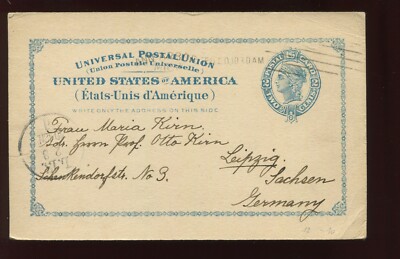 UNIVERSAL POSTAL UNION
(Union Postale Universelle)
10 30 AM
UNITED STATES OF AMERICA
(États-Unis d'Amérique)
WRITE ONLY THE ADDRESS ON THIS SIDE
Frau Maria Kirn
Prof. Otto Kirn
Leipzig
Schenkendorfstr. No 3.
Sachsen
Germany